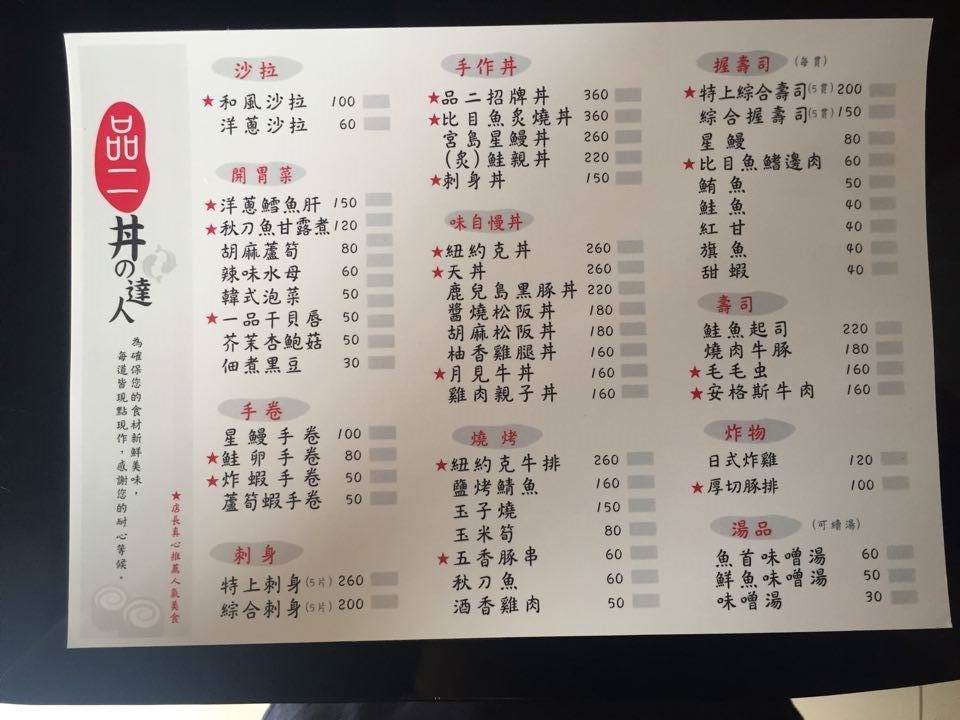 品二
丼の達人
為確保您的食材新鮮美味，
每道皆現點現作，感謝您的耐心等候。
★店長真心推薦人氣美食
沙拉
★和風沙拉 100
洋蔥沙拉 60
開胃菜
★洋蔥鱈魚肝 150
★秋刀魚甘露煮 120
胡麻蘆筍 80
辣味水母 60
韓式泡菜 50
★一品干貝唇 50
芥茉杏鮑菇 50
佃煮黑豆 30
手卷
星鰻手卷 100
★鮭卵手卷 80
★炸蝦手卷 50
蘆筍蝦手卷 50
刺身
特上刺身(5片) 260
綜合刺身(5片) 200
手作丼
★品二招牌丼 360
★比目魚炙燒丼 360
宮島星鰻丼 260
(炙)鮭親丼 220
★刺身丼 150
味自慢丼
★紐約克丼 260
★天丼 260
鹿兒島黑豚丼 220
醬燒松阪丼 180
胡麻松阪丼 180
柚香雞腿丼 160
★月見牛丼 160
雞肉親子丼 160
燒烤
★紐約克牛排 260
鹽烤鯖魚 160
玉子燒 150
玉米筍 80
★五香豚串 60
秋刀魚 60
酒香雞肉 50
握壽司 (每貫)
★特上綜合壽司(5貫) 200
綜合握壽司(5貫) 150
星鰻 80
★比目魚鰭邊肉 60
鮪魚 50
鮭魚 40
紅甘 40
旗魚 40
甜蝦 40
壽司
鮭魚起司 220
燒肉牛豚 180
★毛毛虫 160
★安格斯牛肉 160
炸物
日式炸雞 120
★厚切豚排 100
湯品 (可續湯)
魚首味噌湯 60
鮮魚味噌湯 50
味噌湯 30